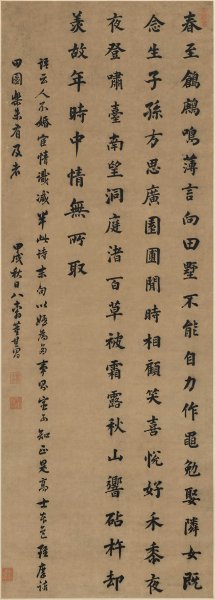 春至鶬鶊鳴薄言向田墅不能自力作黽勉娶隣女既
念生子孫方思廣園圃閒時相顧笑喜悅好禾黍夜
夜登嘯臺南望洞庭渚百草被霜露秋山響砧杵却
羨故年時中情無所取
語云人不婚宦情減半此詩末句以婚為多事宦可知正是高士本色摩詰
田園樂未有及者
甲戌秋日八十翁董其昌